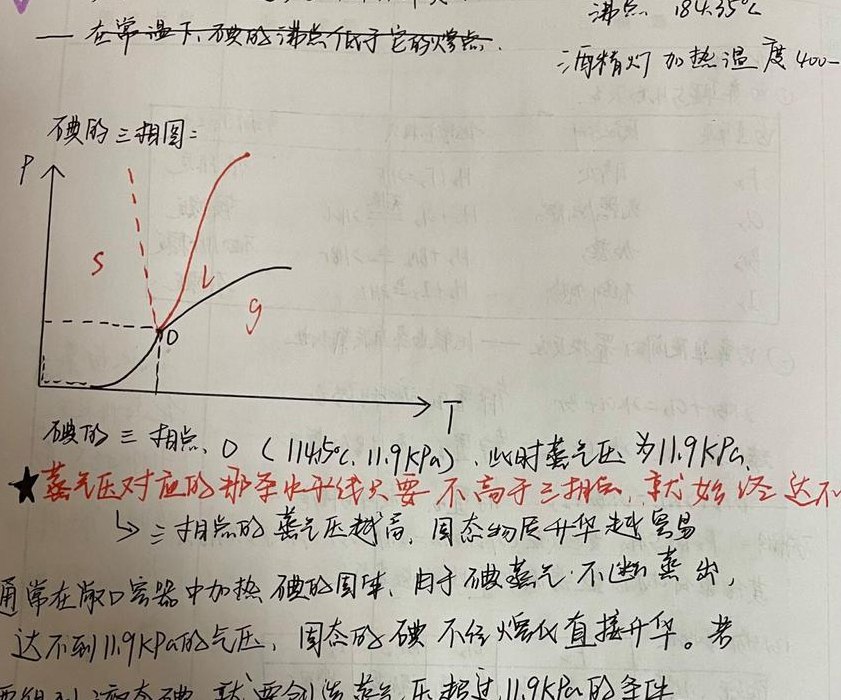 沸点. 184.35℃
— 在常温下,碘的沸点低于它的熔点.
酒精灯加热温度400-
碘的三相图:
P
S
L
g
O
T
碘的三相点, O (114.5℃, 11.9kPa), 此时蒸气压为11.9kPa.
★蒸气压对应的那条水平线只要不高于三相点, 就始终达不
↳ 三相点的蒸气压越高, 固态物质升华越容易
通常在敞口容器中加热碘的固体, 由于碘蒸气不断蒸出,
达不到11.9kPa的气压, 固态的碘不经熔化直接升华。若
液态碘, 就要创造蒸气压超过11.9kPa的条件